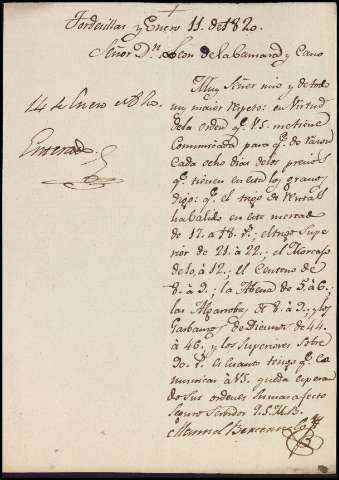 Tordesillas y Enero 11. de 1820.
Señor Dn. Leon de la Camara y Cano
14 de Enero de 820.
Enterado
Muy Señor mio y de todo
mi maior respeto: en virtud
de la orden qe. VS. me tiene
Comunicada para qe. de razon
Cada ocho dias de los precios
qe. tienen en esta los granos
digo: qe. el trigo de
ha balido en este mercado
de 17. a 18. rs.; el trigo Supe
rior de 21. à 22.; el Morcajo
de 10. à 12.; el Centeno de
8. à 9.; la Abena de 5. à 6.;
las Algarrobas de 8. à 9.; y los
Garbanzos de Diezmos de 44.
à 46. y los Superiores Sobre
90. rs. Es cuanto tengo qe. Co
municar à VS. queda esperan
do sus ordenes su mas afecto
Seguro Servidor
Manuel